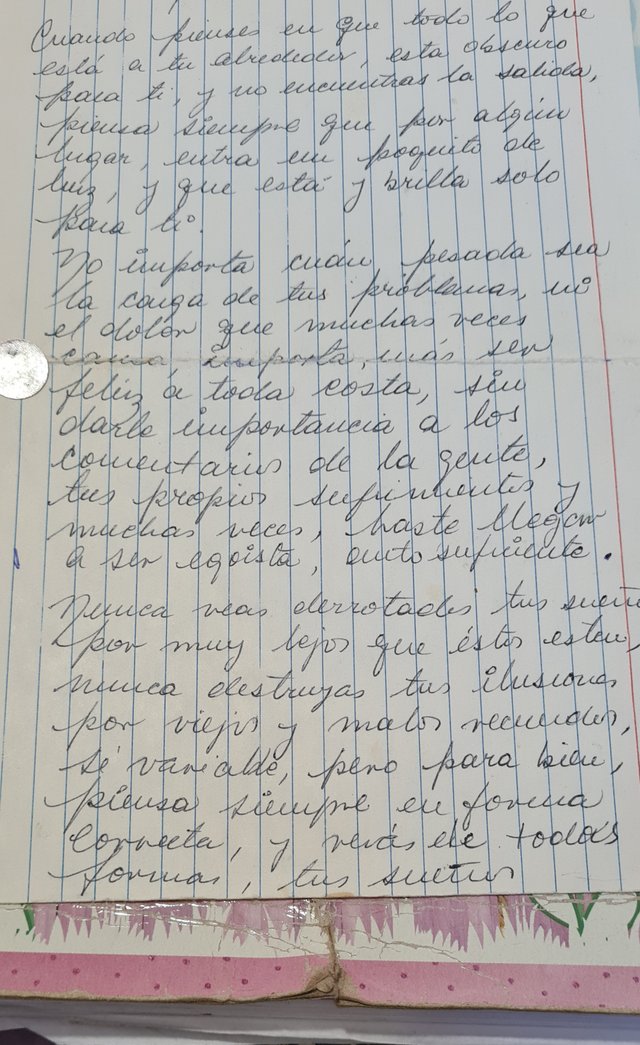 Cuando pienses en que todo lo que
está a tu alrededor, esta obscuro
para ti, y no encuentras la salida,
piensa siempre que por algún
lugar, entra un poquito de
luz, y que está y brilla solo
para ti.
No importa cuán pesada sea
la carga de tus problemas, ni
el dolor que muchas veces
causa, importa, más ser
feliz a toda costa, sin
darle importancia a los
comentarios de la gente,
tus propios sufrimientos y
muchas veces, hasta llegar
a ser egoista, autosuficiente.
Nunca veas derrotados tus sueños
por muy lejos que éstos esten,
nunca destruyas tus ilusiones
por viejos y malos recuerdos,
sé variable, pero para bien,
piensa siempre en forma
correcta, y verás de todas
formas, tus sueños